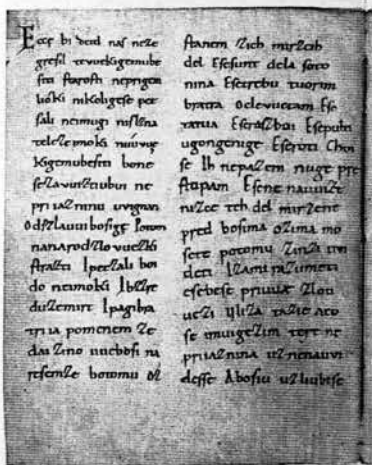 Ecce bi detd naſ neze
greſil tevuekigemube
ſiti ſtaroſti neprigem
lioki nikoligeſe pet
ſali neimugi niſlzna
teleze imoki nuúvue
kigemubeſiti bone
ſezavuiztiubui ne
priiazninu uvignan
Odſzlauuiboſige Potom
nanarodzlovuezki
ſtrazti Ipetzali boi
do neimoki Ibzzre
duzemirt Ipagibra
triia pomenem ze
dai zino uueboſi na
reſemze botomu oz
ſtanem zich mirzcih
del Eſeſunt dela ſoto
nina Eſetrebu tuorim
bratra Oclevuetam Eſe
tatua Eſerazboi Eſepulti
ugongenige Eſeroti Choi
ſe Ih nepazem nuge pre
ſtopam Eſene nauuiz
nizce teh del mirzene
pred boſima ozima mo
ſete potomu zinzi uvi
deti Izami razumeti
eſebeſe priuuae zlou
uezi uliza tazie aco
ſe imuigezim tere ne
priiaznina uznenauvi
deſſe Aboſiu uzliubiſe